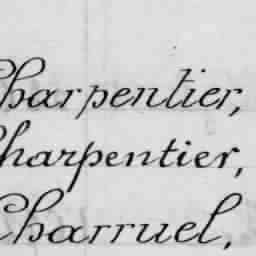 Charpentier,
Charpentier,
Charruel,